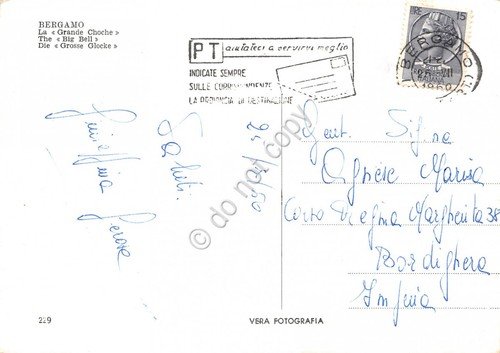 BERGAMO
La « Grande Choche »
The « Big Bell »
Die « Grosse Glocke »
PT aiutateci a servirvi meglio
INDICATE SEMPRE
SULLE CORRISPONDENZE
LA PROVINCIA DI DESTINAZIONE
LIRE 15
BERGAMO
Saluti
Giuseppina
Gent. Sig.na
Agnese Marisa
Corso Regina Margherita 38
Bordighera
Imperia
do not copy
229
VERA FOTOGRAFIA